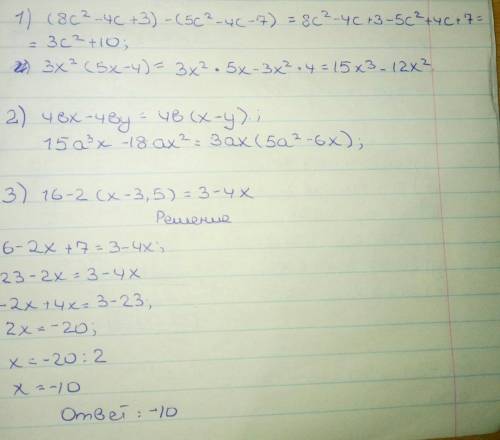 1) (8c²-4c+3)-(5c²-4c-7) = 8c²-4c+3-5c²+4c+7=
= 3c²+10;
2) 3x²(5x-4)= 3x²·5x-3x²·4=15x³-12x²
2) 4вx-4вy= 4в(x-y);
15a³x-18ax²=3ax(5a²-6x);
3) 16-2(x-3,5)=3-4x
Решение
6-2x+7=3-4x;
23-2x=3-4x
-2x+4x=3-23,
2x=-20;
x=-20:2
x=-10
Ответ:-10